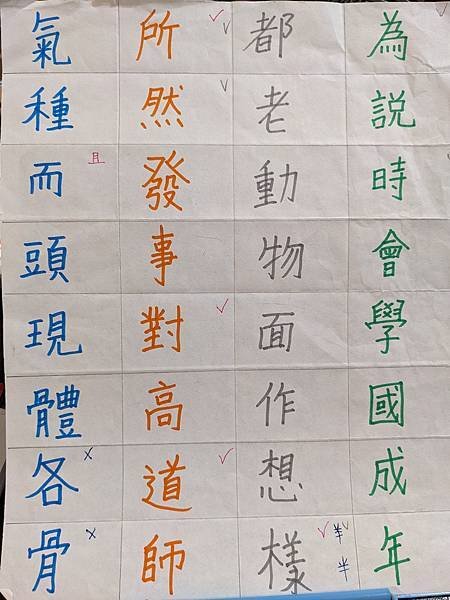 為說時會學國成年
都老動物面作想樣
所然發事對高道師
氣種而頭現體各骨
且